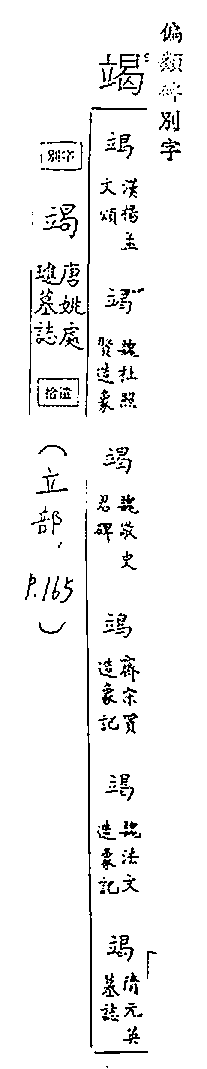 偏類碑別字
竭
竭 漢楊孟文頌
竭 魏杜照賢造象
竭 魏敬史君碑
竭 齊宋買造象記
竭 魏法文造象記
竭 隋元英墓誌
別字
竭 唐姚處璡墓誌
拾遺
(立部, P.165)